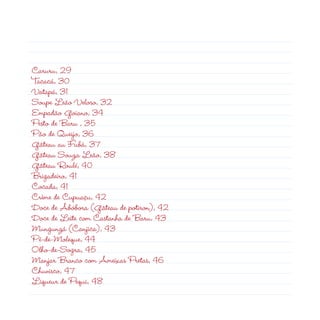 Caruru, 29
Tacacá, 30
Vatapá, 31
Soupe Leão Veloso, 32
Empadão Goiano, 34
Pesto de Baru , 35
Pão de Queijo, 36
Gâteau au Fubá, 37
Gâteau Souza Leão, 38
Gâteau Roulé, 40
Brigadeiro, 41
Cocada, 41
Crème de Cupuaçu, 42
Doce de Abóbora (Gâteau de potiron), 42
Doce de Leite com Castanha de Baru, 43
Mungunzá (Canjica), 43
Pé-de-Moleque, 44
Olho-de-Sogra, 45
Manjar Branco com Ameixas Pretas, 46
Chuvisco, 47
Liqueur de Pequi, 48